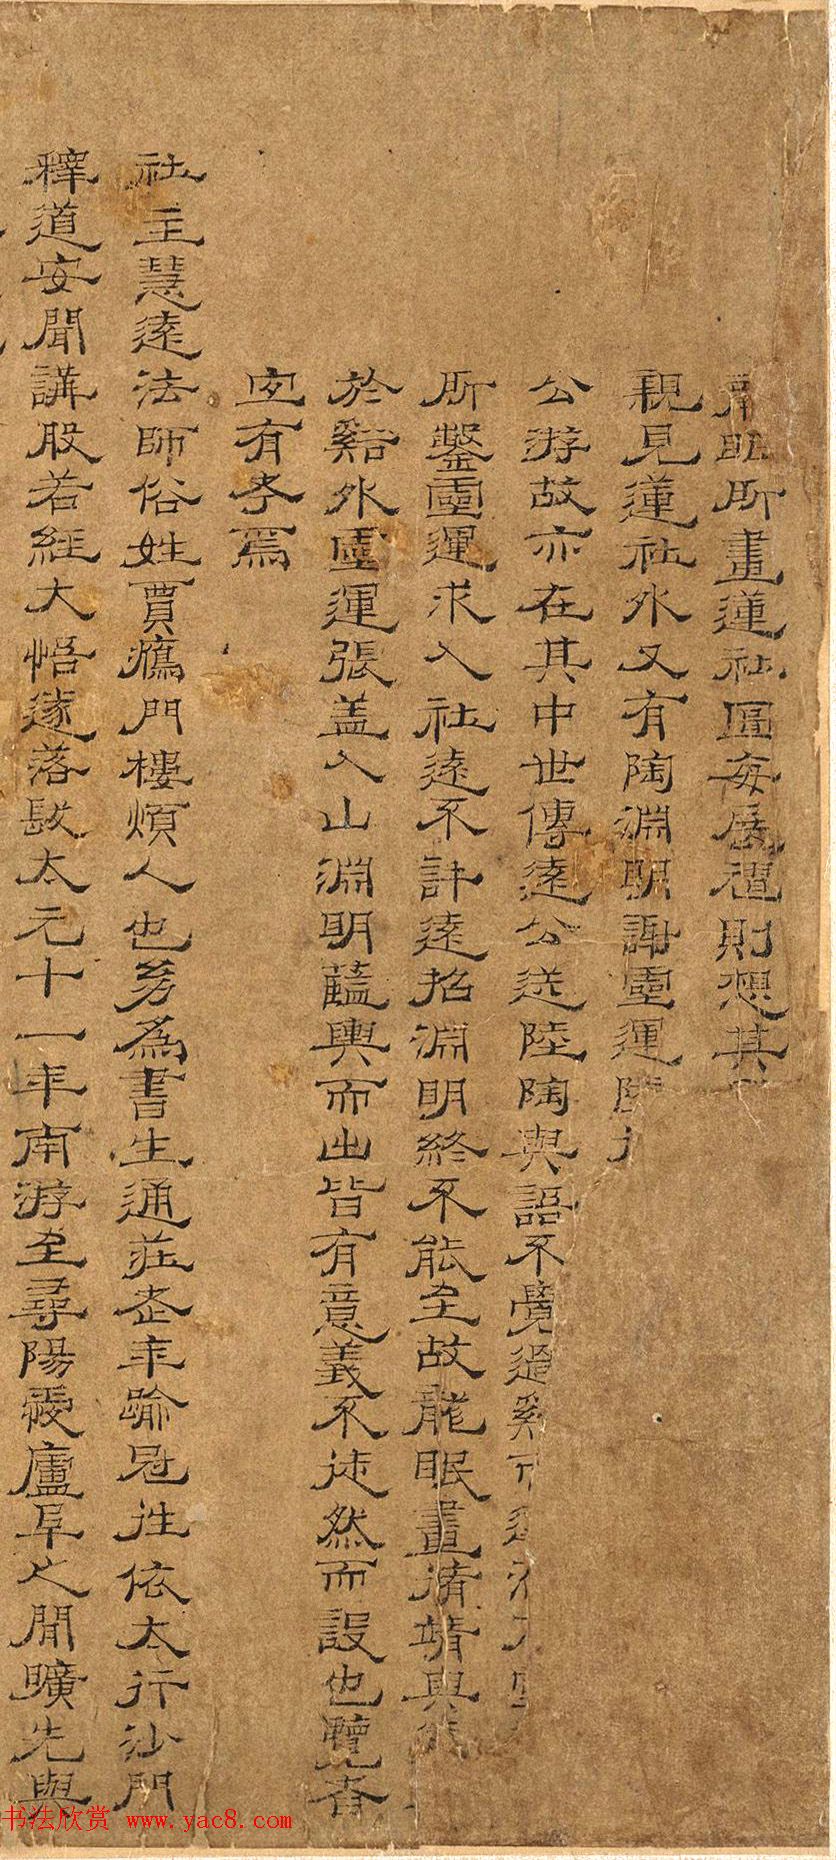 龍眠所畫蓮社圖每展翫則想其
親見蓮社外又有陶淵明謝靈運陸
公游故亦在其中世傳遠公送陸陶與語不覺過谿
所鑿靈運求入社遠不許遠招淵明終不能至故龍眠畫脩靖與
於谿外靈運張盖入山淵明藍輿而出皆有意義不徒然而設也覽者
宜有考焉
社主慧遠法師俗姓賈鴈門樓煩人也㓜為書生通莊老年踰冠往依太行沙門
釋道安聞講般若經大悟遂落髮太元十一年南游至尋陽愛廬阜之閒曠先與
书法欣赏 www.yac8.com